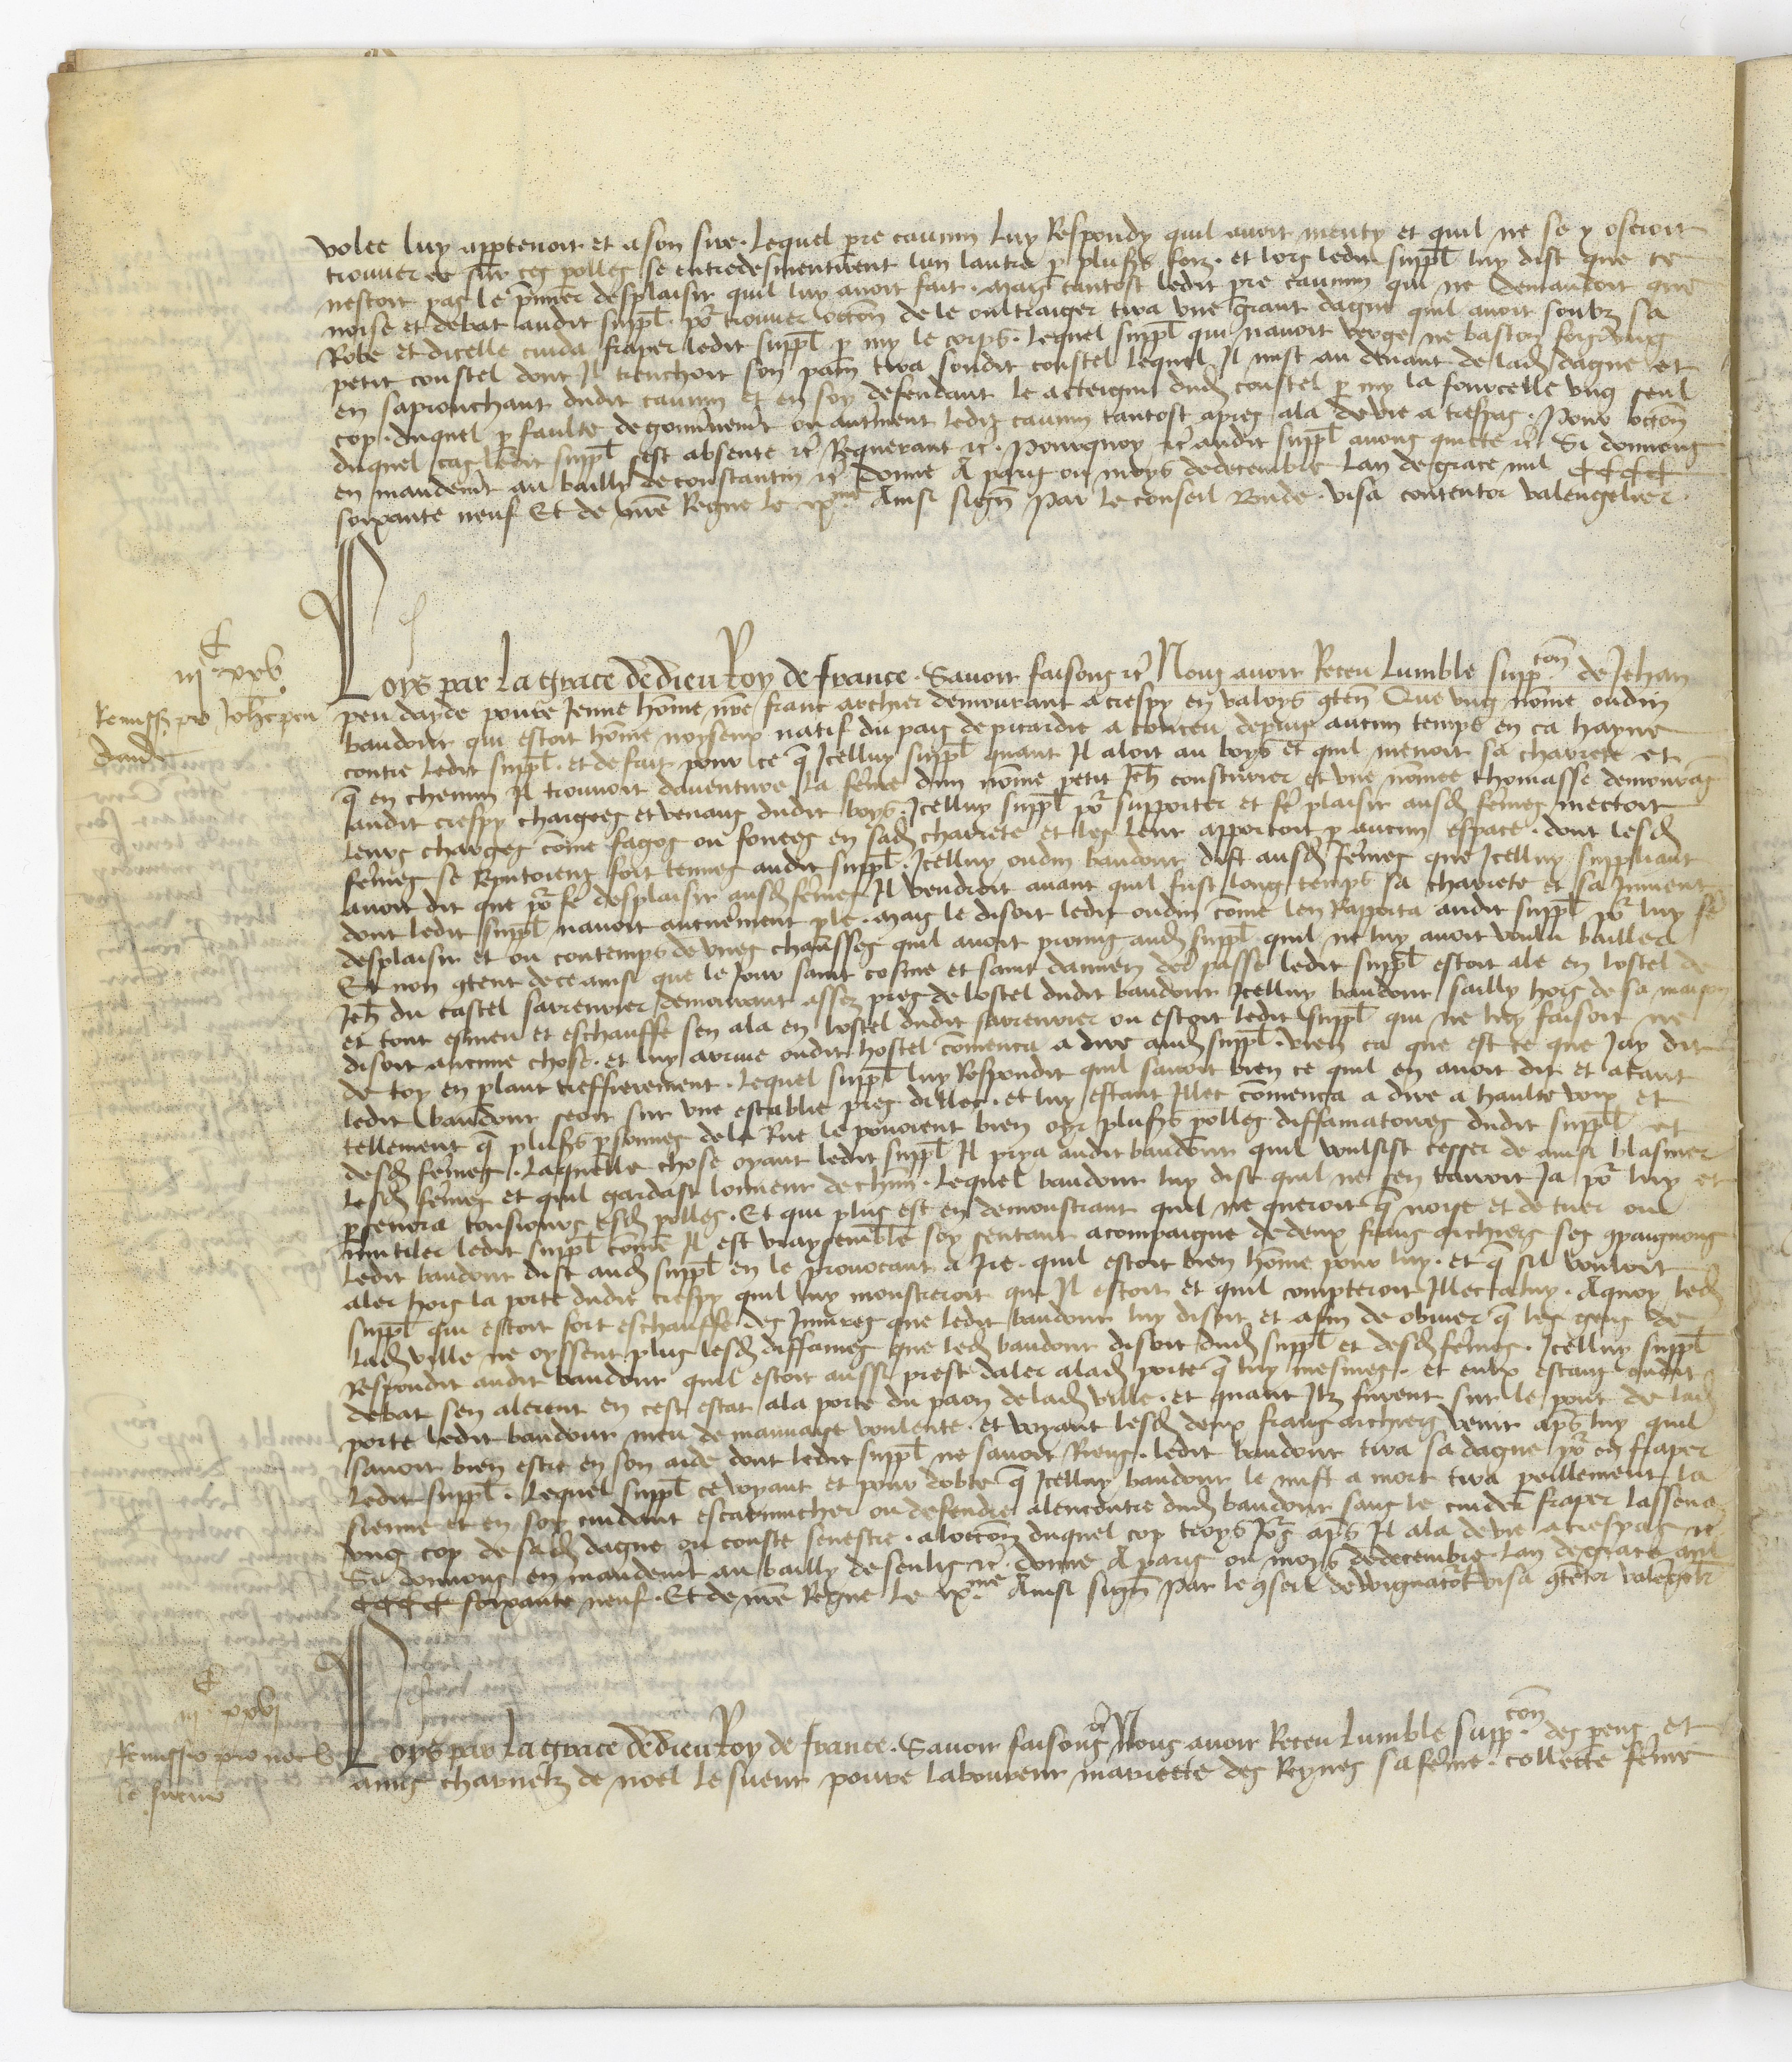 volee luy appten̄oit et a son sire. Lequel pre caucum luy Respondy quil avoit menty et quil ne se y oseroit
trouver et sur ces polles se entredesmentirent lun lautre p plus's foiz. et lors ledit suppl̄ luy dist que ce
nestoit pas le p̄mier desplaisir quil luy avoit fait. mais tantost ledit pre caucum qui ne demandoit que
noise et debat audit suppl̄. po' trouver occōn de le oultraiger tira une grant dague quil avoit soubz sa
Robe et dicelle cuida fraper ledit suppl̄ p my le corps. Lequel suppl̄ qui navoit verge ne baston fors ung
petit coustel dont Il trenchoit son pain tira sondit coustel lequel Il mist au devant de lad dague et
en saprouchant dudit caucum et en soy defendant le acteigni dud coustel p my la fourcelle ung seul
cop. duquel p faulte de gouv'nemt ou autment ledit caucum tantost apres ala de vie a trespas. Pour occōn
duquel cas ledit suppl̄ sest absente &c Requerant &c. Pourquoy &c audit suppl̄ avons quicte &c Si donnons
en mandemt au bailly de constantin &c Donne A paris ou moys de decembre Lan de grace mil CCCC
soixante neuf Et de nr̄e Regne le ixme Ainsi sign̄ Par le conseil Rinde. visa contentor valengelier.
iijC xxv
Remissio pro Johe peu
daide
Loys par La grace de dieu Roy de france. Savoir faisons &c Nous avoir Receu Lumble suppcōn de Jehan
peu dayde povre Jeune hōme nr̄e franc archier demourant a crespy en valoys qten̄ Que ung nōme oudin
baudour qui estoit hōme noyseux natif du pais de picardie a conceu depuis aucun temps en ca hayne
contre ledit suppl̄. et de fait pour ce q̄ Icelluy suppl̄ quant Il aloit au boys et quil menoit sa charrete et
q̄ en chemin Il trouvoit daventure la fēme dun nōme petit Jeh̄ cousturier et une nōmee thomasse demourās
audit crespy chargees et venans dudit boys. Icelluy suppl̄ po' supporter et fe' plaisir ausd fēmes mectoit
leurs charges cōme fagos ou fouees en sad charrete et les leur apportoit p aucun espace. dont lesd
fēmes se Reputoient fort tenues audit suppl̄. Icelluy oudin baudour dist ausd fēmes que Icelluy suppliant
avoit dit que po' fe' desplaisir ausd fēmes Il vendroit avant quil fust long temps sa charrete et sa Jument
dont ledit suppl̄ navoit aucunement ple. Mais le disoit ledit oudin cōme len Rapporta audit suppl̄ po' luy fe'
desplaisir et ou contemps de unes chausses quil avoit promis aud suppl̄. quil ne luy avoit voulu bailler
Et non qtent de ce ainsi que le Jour saint cosme et saint damien der' passe ledit suppl̄ estoit ale en lostel de
Jeh̄ du castel savrenrier demourant assez pres de lostel dudit baudour Icelluy baudour sailly hors de sa maison
et tout esmeu et eschauffe sen ala en lostel dudit savrenrier ou estoit ledit suppl̄ qui ne luy faisoit ne
disoit aucune chose. et luy arrive oudit hostel cōmenca a dire aud suppl̄. vien ca que est ce que Jay dit
de toy en plant tresfierement. Lequel suppl̄ luy Respondit quil savoit bien ce quil en avoit dit et atant
ledit baudour seoit sur une establie pres dillec. et luy estant Illec cōmenca a dire a haulte voix et
tellement q̄ plus's psonnes de la Rue le povoient bien oyr plus's polles diffamatoires dudit suppl̄ et
desd fēmes. Laquelle chose oyant ledit suppl̄ Il prya audit baudour quil voulsist cesser de ainsi blasmer
lesd fēmes et quil gardast lonneur de chūn. Lequel baudour luy dist quil ne sen tairoit Ja po' luy et
psevera tousiours esd polles. Et qui plus est en demonstrant quil ne queroit q̄ noise et de tuer ou
mutiler ledit suppl̄ cōme Il est vraysemble soy sentant acompaigne de deux frans archiers ses qpaignons
Ledit baudour dist aud suppl̄ en le provocant a Ire. quil estoit bien hōme pour luy. et q̄ sil vouloit
aler hors la porte dudit crespy quil luy monstreroit qui Il estoit et quil compteroit Illec a luy. Aquoy led
suppl̄ qui estoit fort eschauffe des Iniures que ledit baudour luy disoit et afin de obvier q̄ les gens de
lad ville ne oyssent plus lesd diffames que led baudour disoit dud suppl̄ et desd fēmes. Icelluy suppl̄
Respondit audit baudour quil estoit aussi prest daler alad porte q̄ luy mesmes. et eulx estans oudit
debat sen alerent en cest estat ala porte du paon de lad ville. et quant Ilz furent sur le pont de lad
porte ledit baudour meu de mauvaise voulente. et voyant lesd deux frans archiers venir ap's luy quil
savoit bien estre en son aide dont ledit suppl̄ ne savoit Riens. ledit baudour tira sa dague po' en fraper
ledit suppl̄. Lequel suppl̄ ce voyant et pour dobte q̄ Icelluy baudour le mist a mort tira peillement la
sienne et en soy cuidant escarmucher ou defendre alencontre dud baudour sans le cuider fraper lassena
ung cop de sad dague ou couste senestre. aloccōn duquel cop troys Jo's ap's Il ala de vie a trespas &c
Si donnons en mandemt au bailly de senlis &c. donne A paris ou moys de decembre. Lan de grace mil
CCCC soixante neuf. Et de nr̄e Regne Le ixme Ainsi sign̄ Par le qseil de voignacort visa qtētor valēgelr̄
iijC xxvj
Remissio pro noel
le sueur
Loys par La grace de dieu Roy de france. Savoir faisons &c Nous avoir Receu Lumble suppcōn des pens et
amis charnelz de noel le sueur povre laboureur mariecte des Reynes sa fēme. collecte fēme